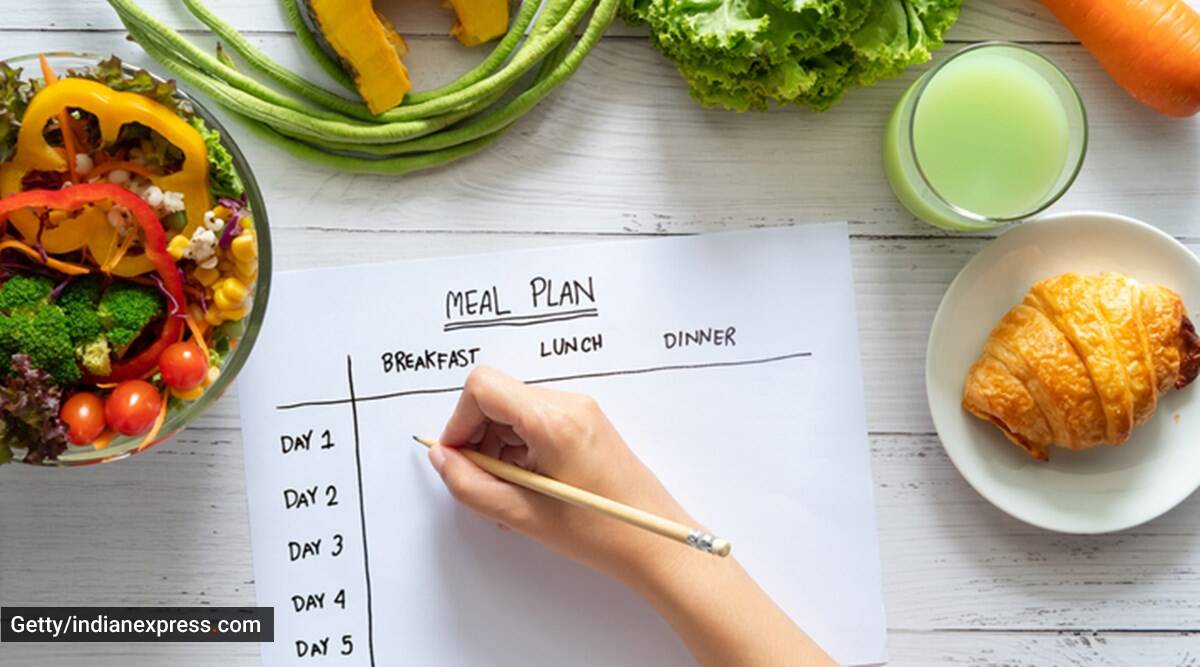 MEAL PLAN
BREAKFAST LUNCH DINNER
DAY 1
DAY 2
DAY 3
DAY 4
DAY 5
Getty/indianexpress.com